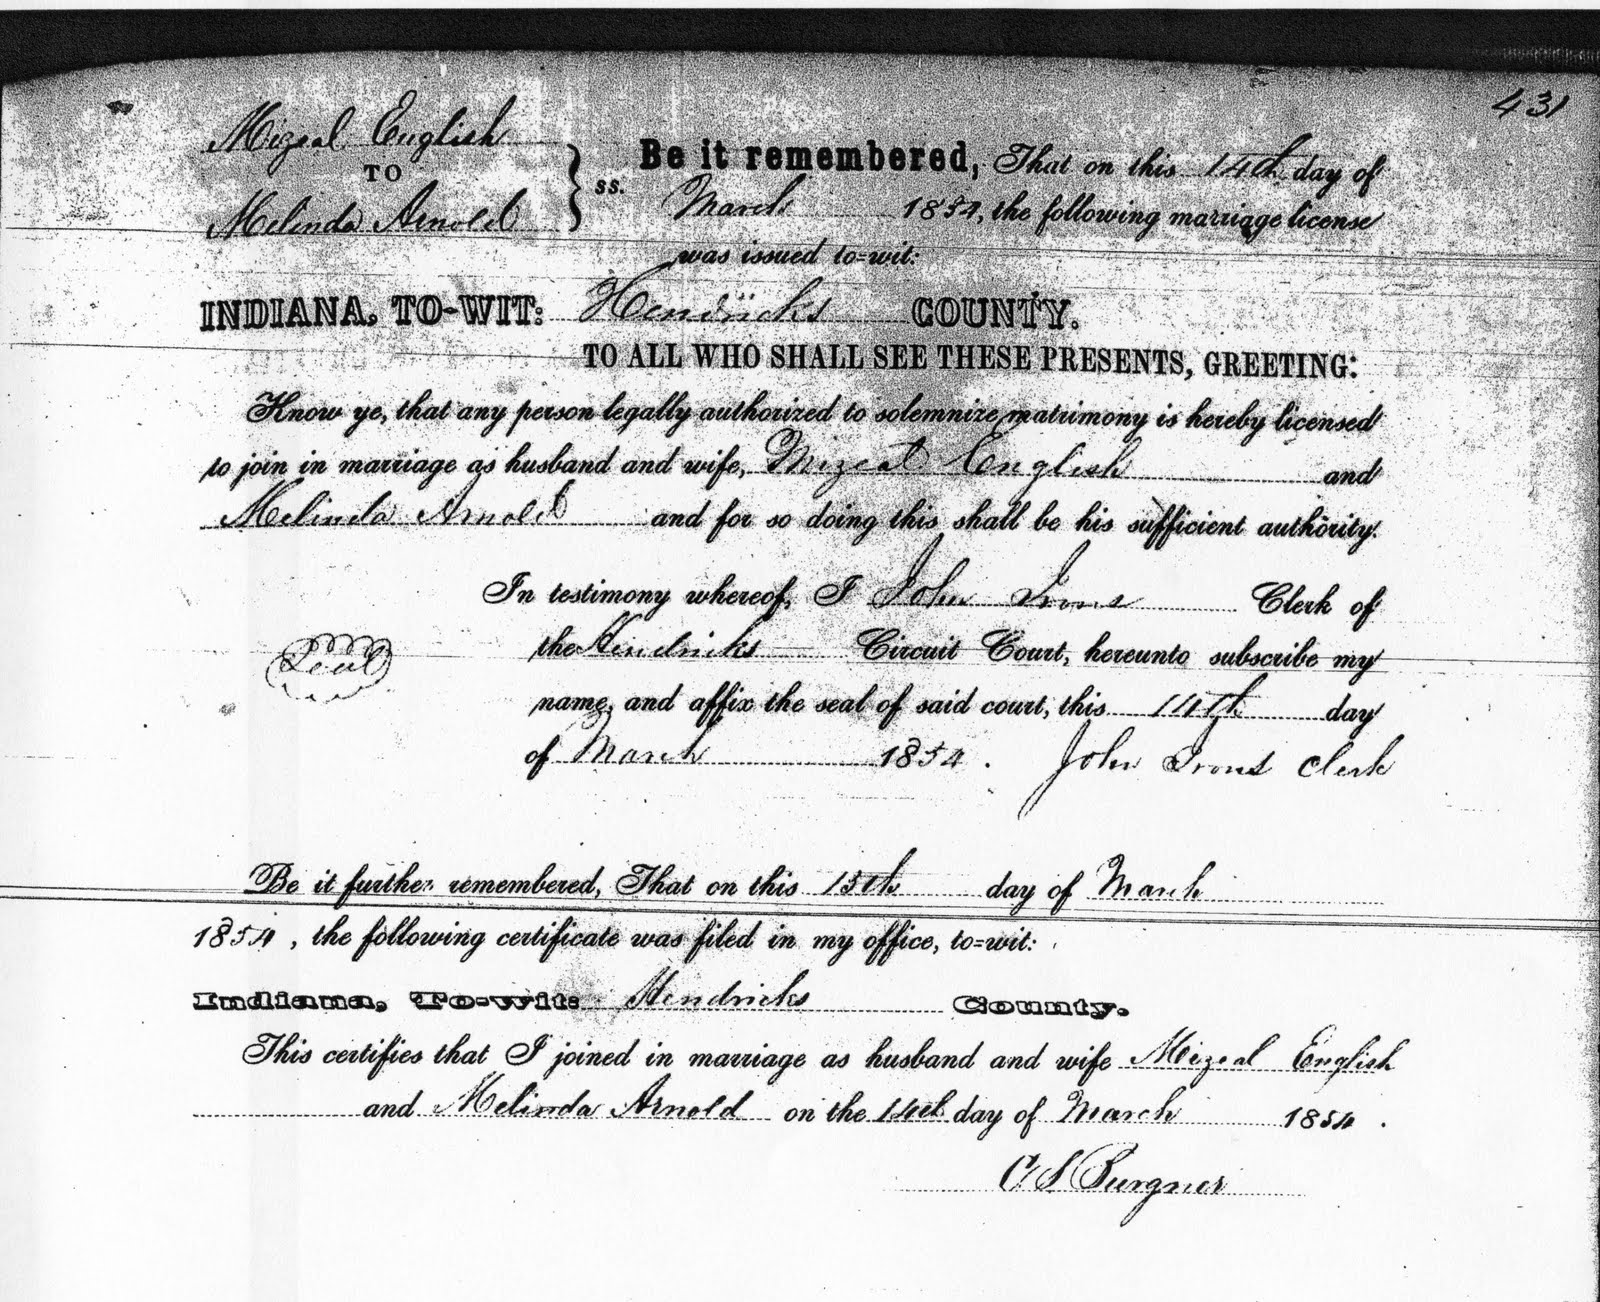 431
Mizeal English
TO
Melinda Arnold
ss.
Be it remembered, That on this 14th day of
March 1854, the following marriage license
was issued to=wit:
INDIANA, TO-WIT: Hendricks COUNTY.
TO ALL WHO SHALL SEE THESE PRESENTS, GREETING:
Know ye, that any person legally authorized to solemnize matrimony is hereby licensed
to join in marriage as husband and wife, Mizeal English and
Melinda Arnold and for so doing this shall be his sufficient authority.
In testimony whereof, I John Irons Clerk of
the Hendricks Circuit Court, hereunto subscribe my
Seal
name, and affix the seal of said court, this 14th day
of March 1854. John Irons Clerk
Be it further remembered, That on this 15th day of March
1854, the following certificate was filed in my office, to=wit:
Indiana, To-wit: Hendricks County.
This certifies that I joined in marriage as husband and wife Mizeal English
and Melinda Arnold on the 14th day of March 1854.
C S Burgner